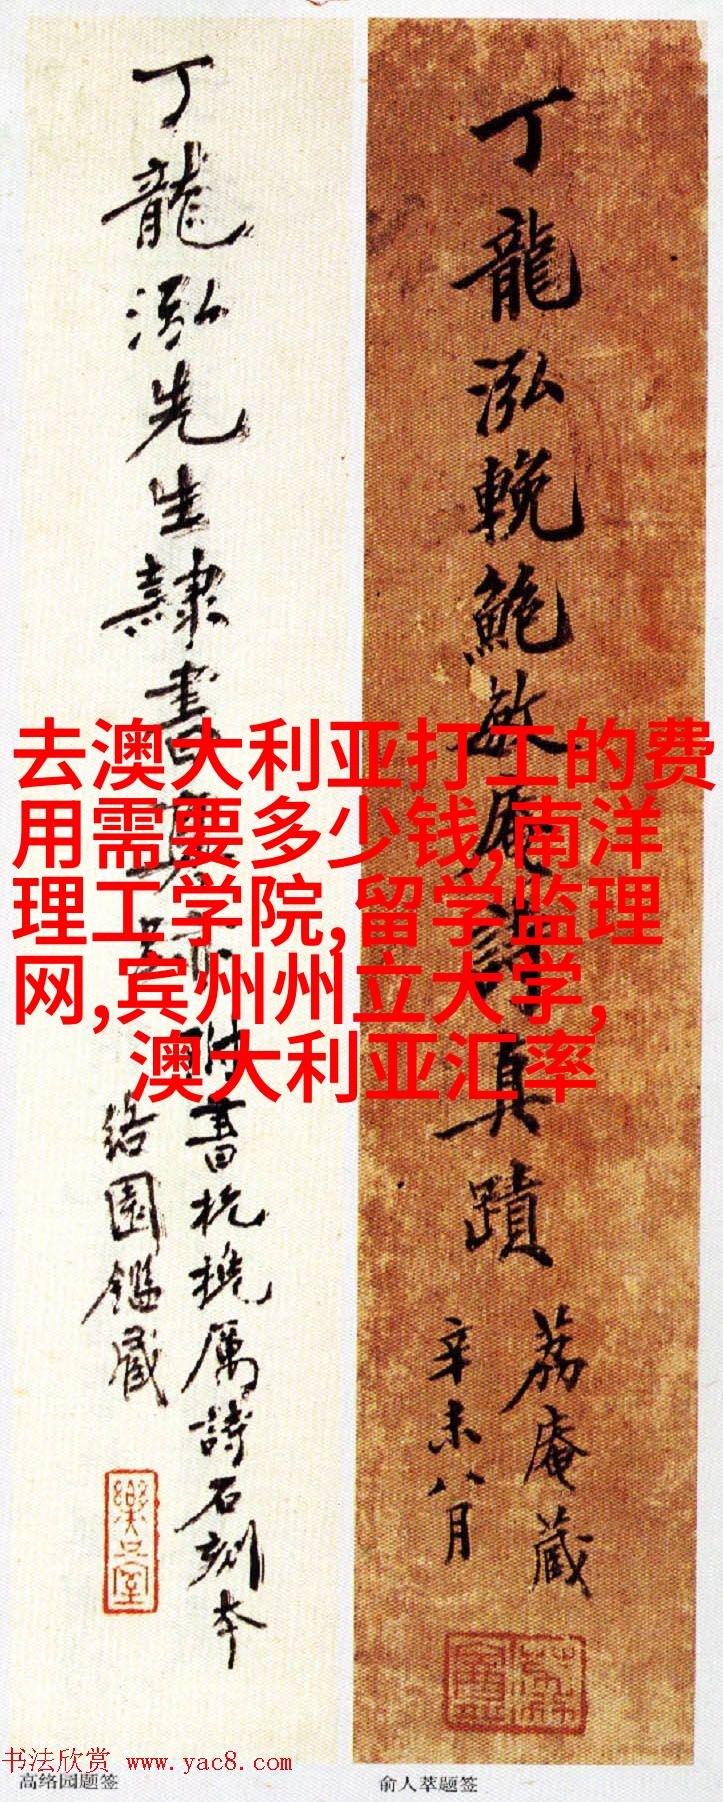 丁龍泓先生隷書真跡附書杭堇浦厲詩石刻本
络園鑑藏
丁龍泓輓鮑敏庵詩真蹟
荔庵藏
辛未八月
去澳大利亚打工的费
用需要多少钱,南洋
理工学院,留学监理
网,宾州州立大学,
澳大利亚汇率
书法欣赏 www.yac8.com
高络园题签
俞人萃题签